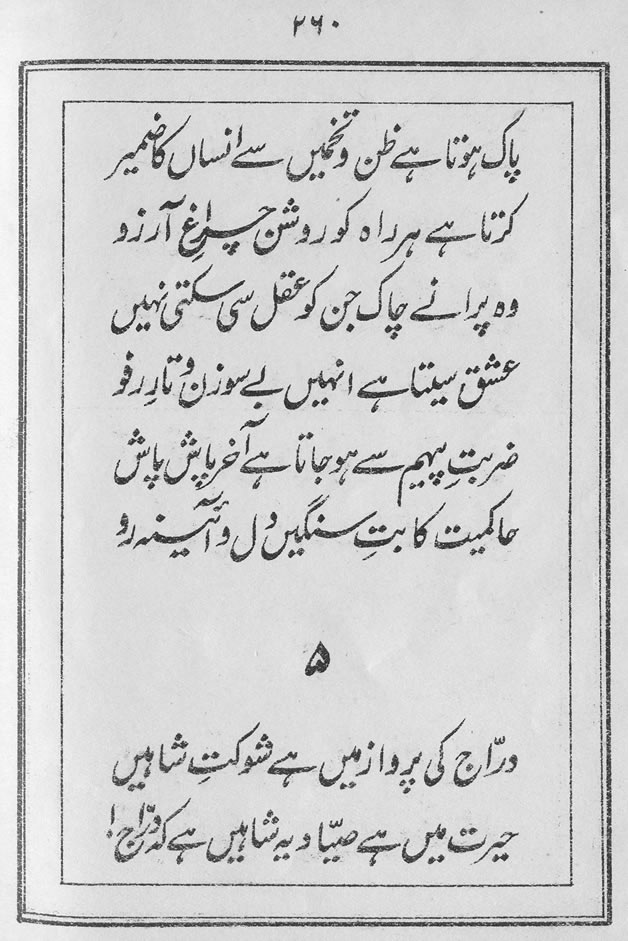 ۲۶۰
پاک ہوتا ہے ظن و تخمیں سے انساں کا ضمیر
کرتا ہے ہر راہ کو روشن چراغِ آرزو
وہ پرانے چاک جن کو عقل سی سکتی نہیں
عشق سیتا ہے انہیں بے سوزن و تارِ رفو
ضربتِ پیہم سے ہو جاتا ہے آخر پاش پاش
حاکمیت کا بتِ سنگیں دل و آئینہ رو
۵
درّاج کی پرواز میں ہے شوکتِ شاہیں
حیرت میں ہے صیّاد یہ شاہیں ہے کہ درّاج!